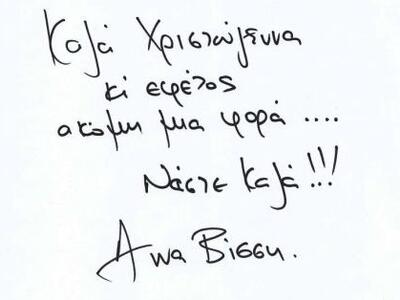 Καλά Χριστούγεννα
κι εφέτος
ακόμη μια φορά ....
Νάστε Καλά!!!
Άννα Βίσση.